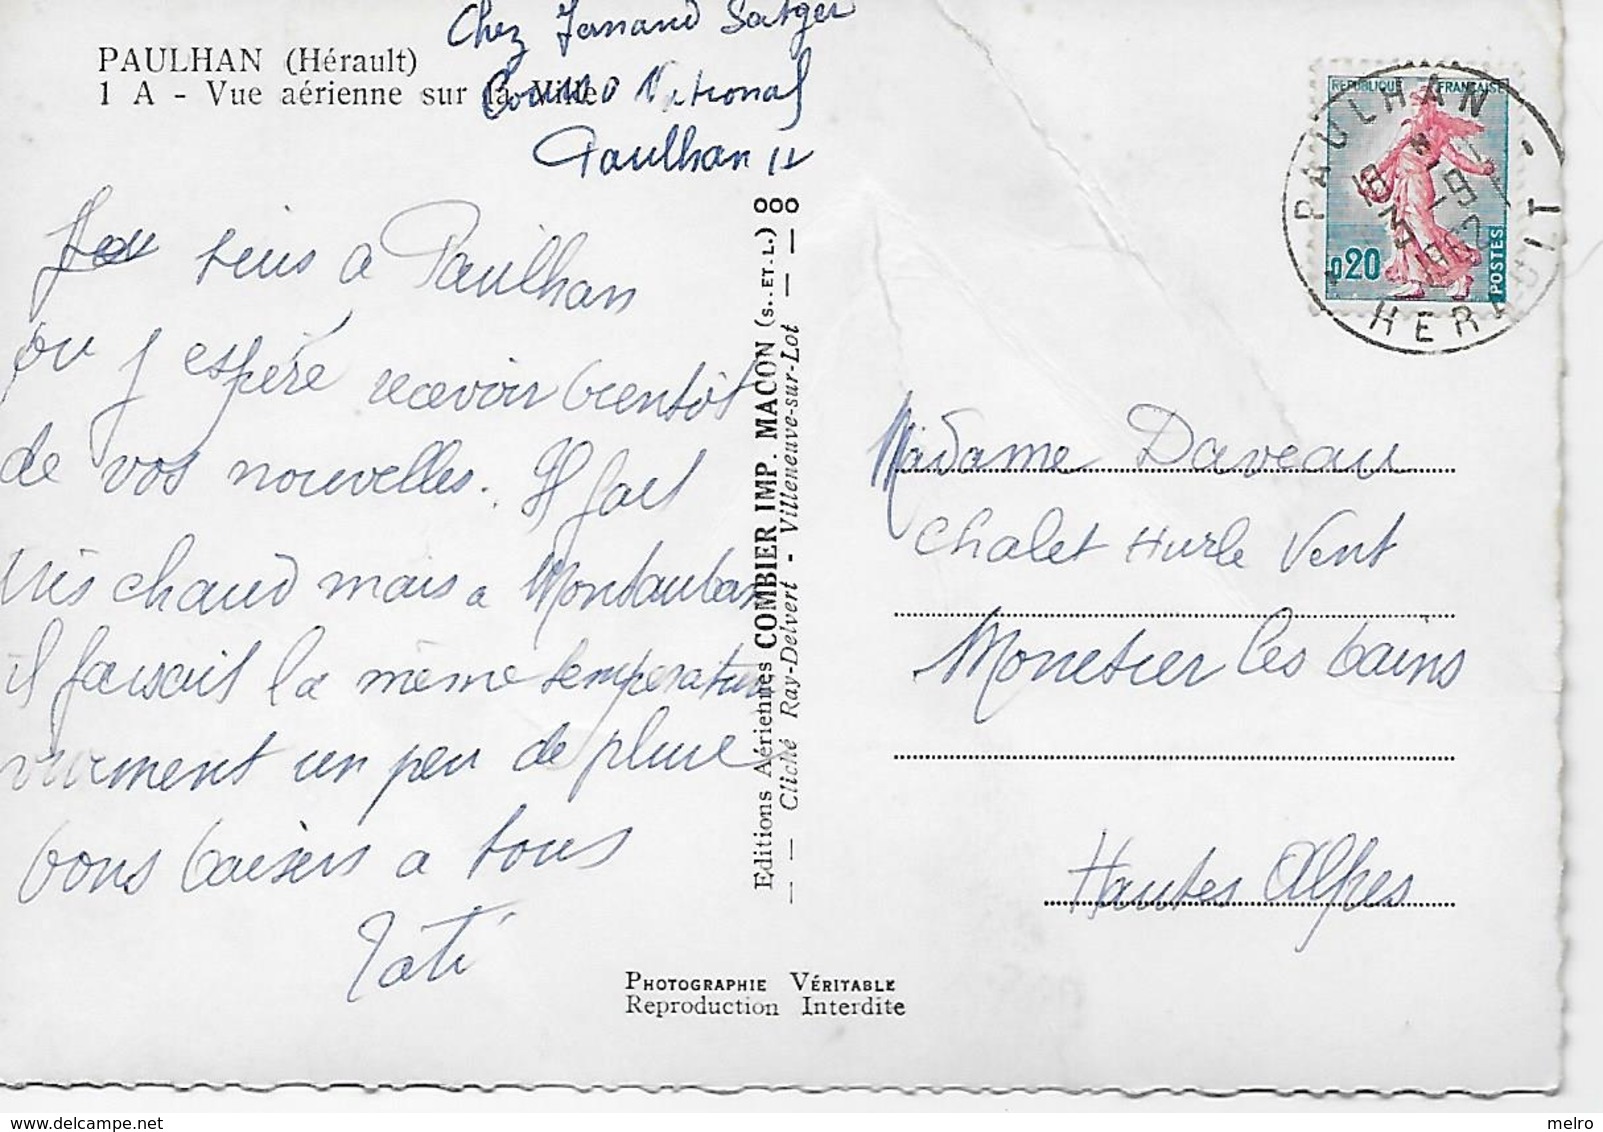 Chez Fernand Satger
PAULHAN (Hérault)
1 A - Vue aérienne sur la Ville
Cours National
Paulhan
suis a Paulhan
ou j espéré recevoir bientôt
de vos nouvelles. Il fait
très chaud mais a Montauban
il faisait la même temperature
vivement un peu de pluie
bons baisers a tous
Tati
Editions Aériennes COMBIER IMP. MACON (S.-ET-L.) 000
— Cliché Ray-Delvert - Villeneuve-sur-Lot — — —
PHOTOGRAPHIE VÉRITABLE
Reproduction Interdite
REPUBLIQUE FRANÇAISE
0,20
POSTES
PAULHAN
18
3 -9
1962
HERAULT
Madame Daveau
Chalet Hurle Vent
Monetier les bains
Hautes Alpes
melro